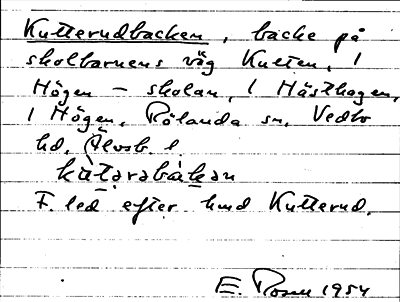 Kutterudbacken, backe på
skolbarnens väg Kutten, 1
Högen - skolan, 1 Hästhagen,
1 Högen, Rölanda sn, Vedbo
hd, Älvsb. l.
kùtərəbàkən
F. led efter hmd Kutterud.
E. Rosen 1954